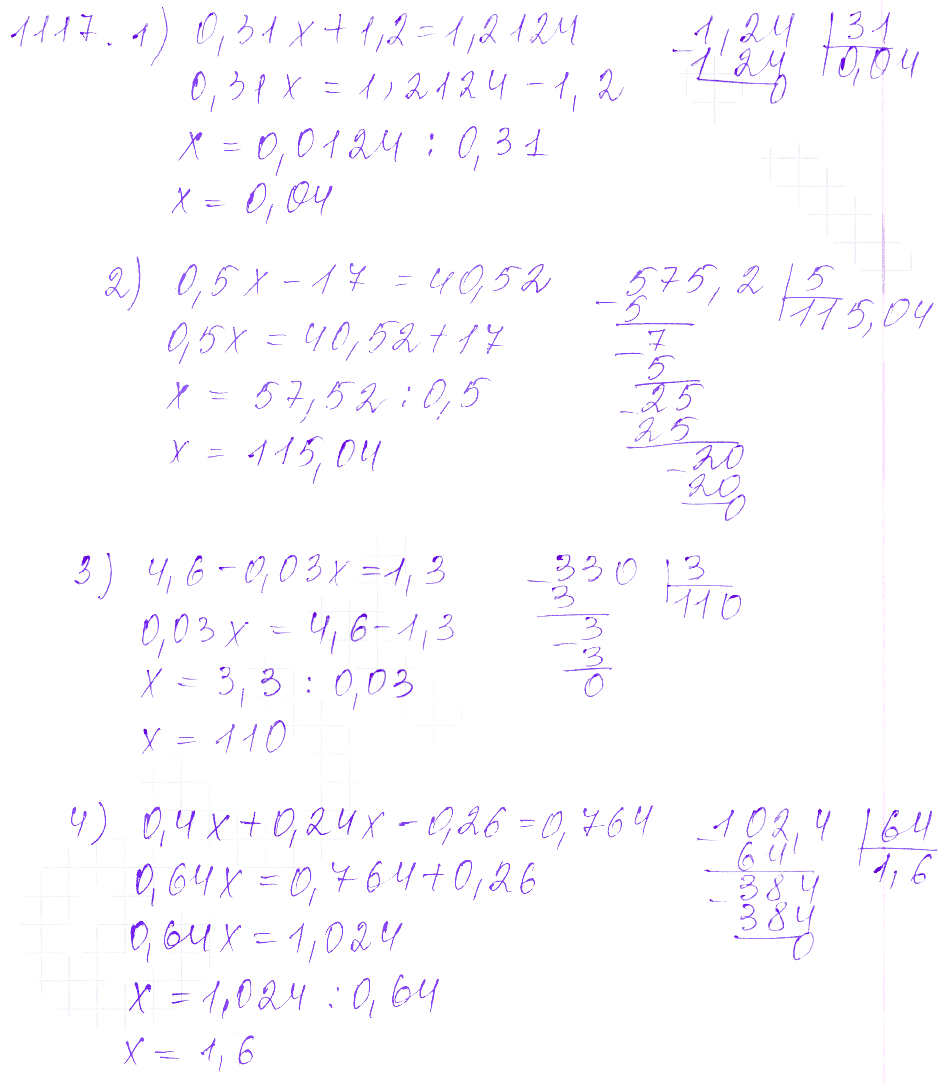 1117. 1) 0,31x + 1,2 = 1,2124
0,31x = 1,2124 - 1,2
x = 0,0124 : 0,31
x = 0,04
- 1,24 | 31
1 24 | 0,04
0
2) 0,5x - 17 = 40,52
0,5x = 40,52 + 17
x = 57,52 : 0,5
x = 115,04
- 575,2 | 5
5 | 115,04
- 7
5
- 25
25
- 20
20
0
3) 4,6 - 0,03x = 1,3
0,03x = 4,6 - 1,3
x = 3,3 : 0,03
x = 110
- 330 | 3
3 | 110
- 3
3
0
4) 0,4x + 0,24x - 0,26 = 0,764
0,64x = 0,764 + 0,26
0,64x = 1,024
x = 1,024 : 0,64
x = 1,6
- 102,4 | 64
64 | 1,6
- 384
384
0